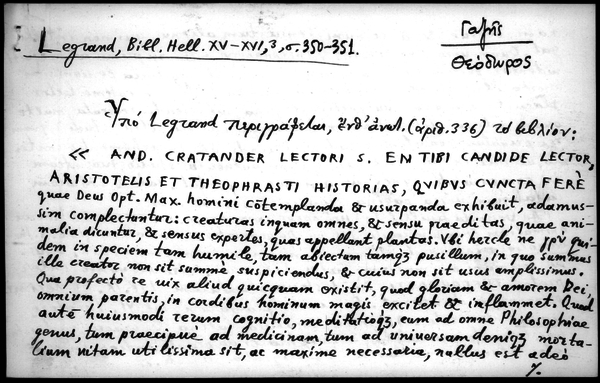 Legrand, Bibl. Hell. XV-XVI, 3, σ. 350-351.
Γαζῆς
Θεόδωρος
Ὑπό Legrand περιγράφεται, ἔνθ' ἀνωτ. (ἀριθ. 336) τὸ βιβλίον:
« AND. CRATANDER LECTORI S. EN TIBI CANDIDE LECTOR,
ARISTOTELIS ET THEOPHRASTI HISTORIAS, QVIBVS CVNCTA FERÈ
quae Deus Opt. Max. homini cōtemplanda & usurpanda exhibuit, adamus-
sim complectantur: creaturas inquam omnes, & sensu praeditas, quae ani-
malia dicuntur, & sensus expertes, quas appellant plantas. Vbi hercle ne γρὺ qui-
dem in speciem tam humile, tam abiectum tamqʒ pusillum, in quo summus
ille creator non sit summè suspiciendus, & cuius non sit usus amplissimus.
Qua profectò re uix aliud quicquam existit, quod gloriam & amorem Dei
omnium parentis, in cordibus hominum magis excitet & inflammet. Quòd
autē huiusmodi rerum cognitio, meditatioqʒ, cum ad omne Philosophiae
genus, tum praecipuè ad medicinam, tum ad universam deniqʒ morta-
lium uitam utilissima sit, ac maxime necessaria, nullus est adeò
%.